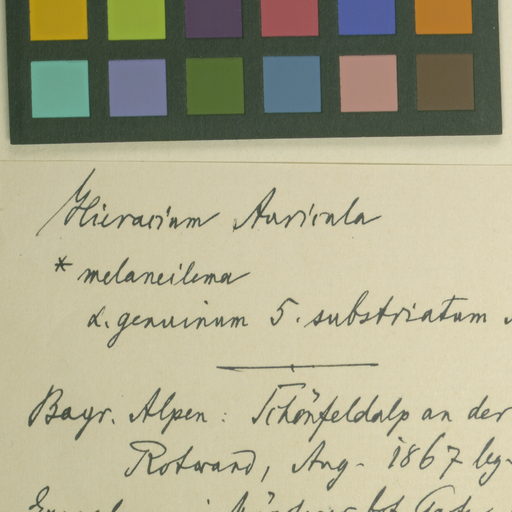 Hieracium Auricula
* melaneilema
α. genuinum 5. substriatum
Bayr. Alpen: Schönfeldalp an der
Rotwand, Aug. 1867 leg.
bot. Gart